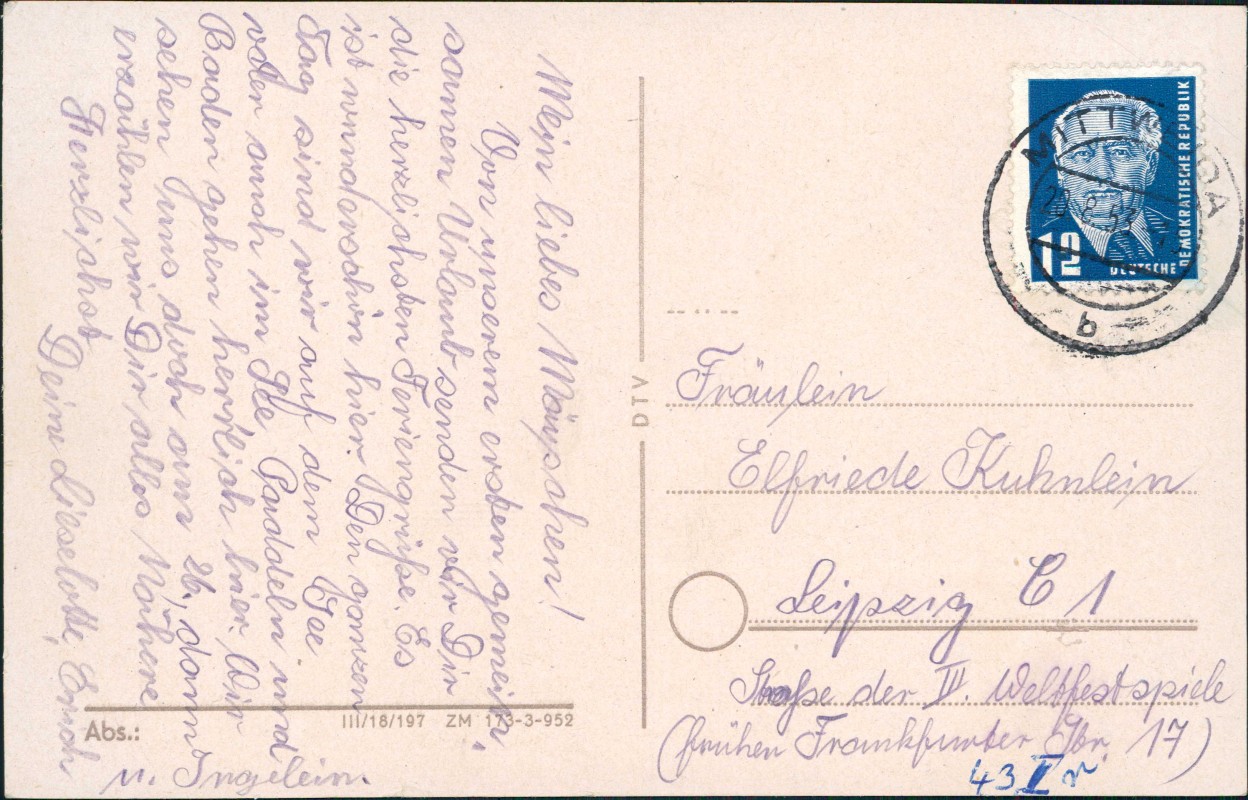 Mein liebes Mäuschen!
Von unserem ersten gemein-
samen Urlaub senden wir Dir
die herzlichsten Feriengrüße. Es
ist wunderschön hier. Den ganzen
Tag sind wir auf dem See
oder auch im See. Paddeln und
Baden gehen herrlich hier. Wir
sehen uns doch am 26., dann
erzählen wir Dir alles Nähere.
Herzlichst
Deine Liselotte, Erich
u. Ingelein.
Abs.:
III/18/197 ZM 173-3-952
DTV
12
DEUTSCHE
DEMOKRATISCHE REPUBLIK
MITTWEIDA
8.53
b
Fräulein
Elfriede Kuhnlein
Leipzig C 1
Straße der III. Weltfestspiele
(früher Frankfurter Str. 17)
43 I r